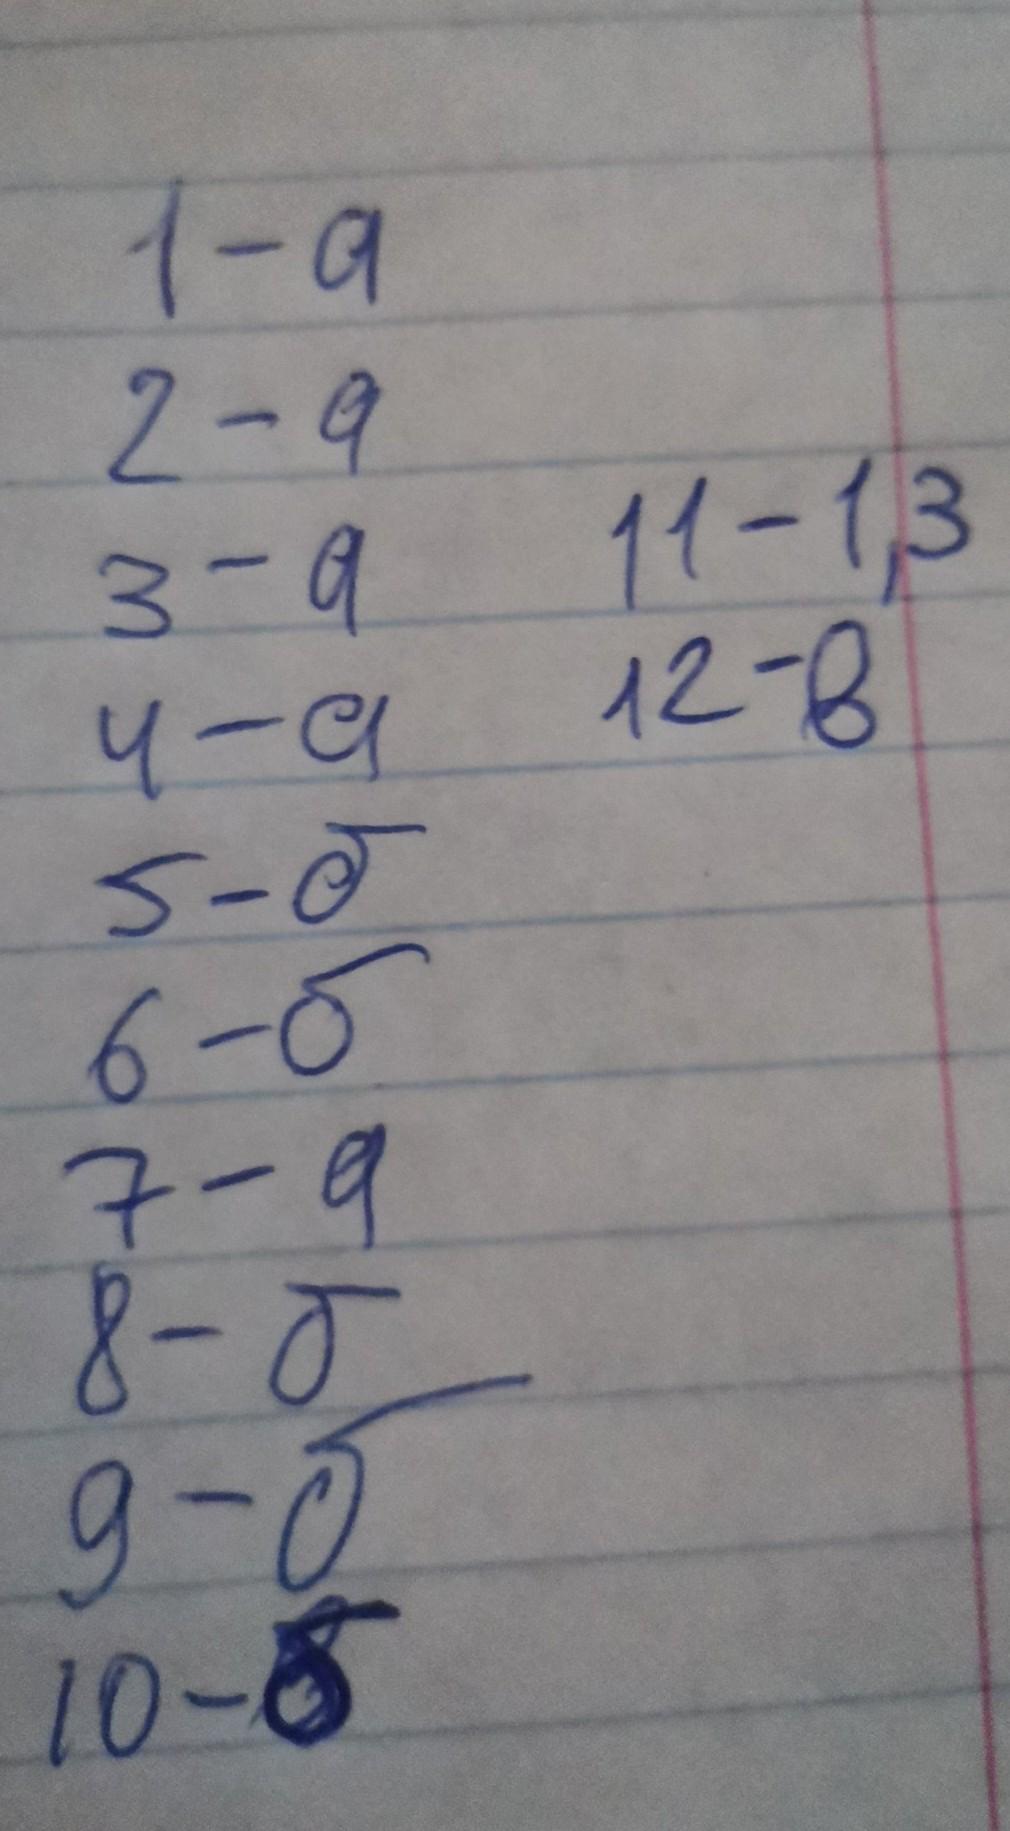 1 - а
2 - а
3 - а
4 - а
5 - б
6 - б
7 - а
8 - б
9 - б
10 - б
11 - 1,3
12 - в